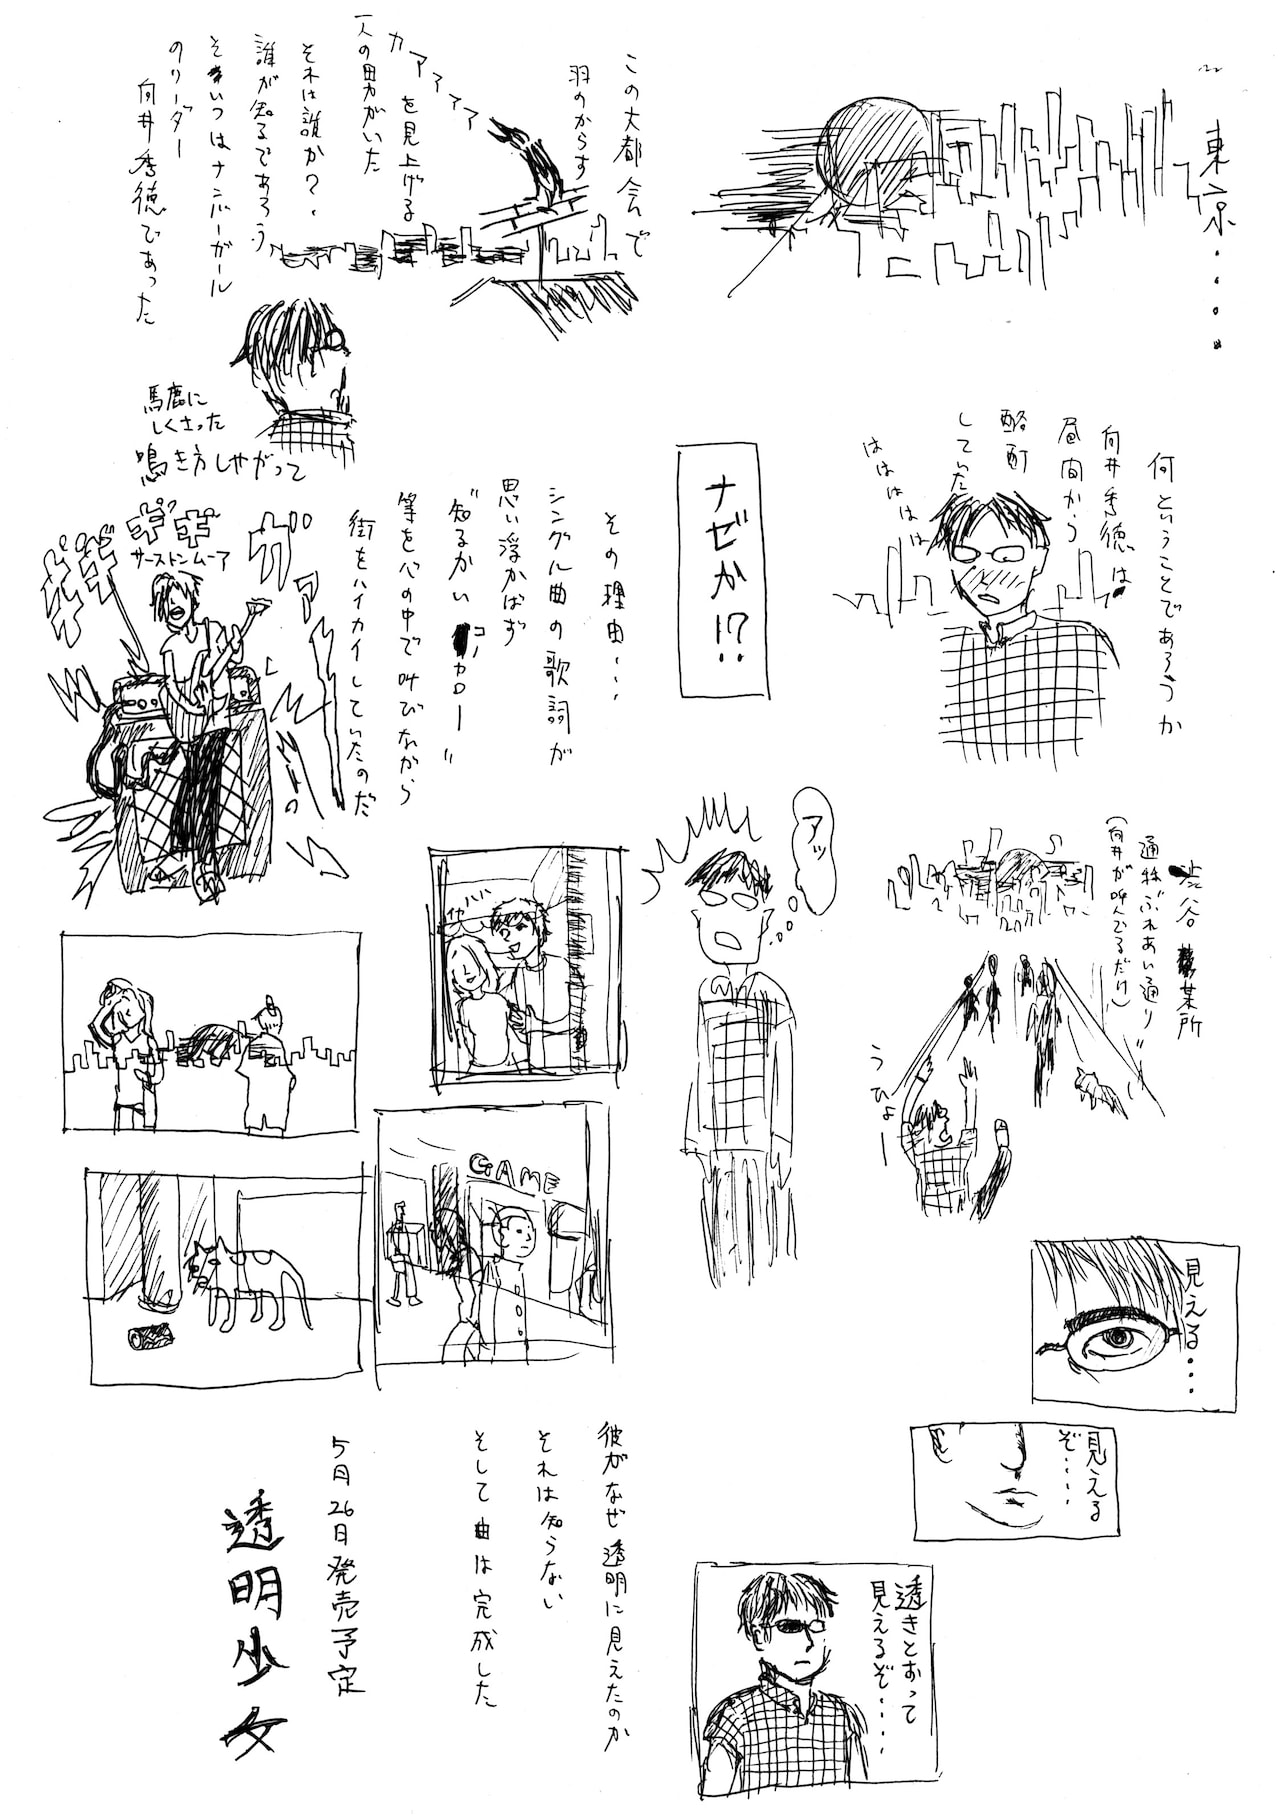 東京・・・・・
この大都会で
一羽のからす
カアアアア
を見上げる
一人の男がいた
それは誰か?
誰が知るであろう
そいつはナンバーガール
のリーダー
向井秀徳であった
馬鹿に
しくさった
鳴き方しやがって
何ということであろうか
向井秀徳は
昼間から
酩酊
していた
はははは
ナゼか!?
その理由・・・
シングル曲の歌詞が
思い浮かばず
“知るかい コノカロー”
等を心の中で叫びながら
街をハイカイしていたのだ
ギギ
ギギ
ガァ
サーストンムーア
渋谷 某所
通称“ふれあい通り”
(向井が呼んでるだけ)
うひょー
アッ
イヤハハ
GAME
見える・・・
見える
ぞ・・・・
透きとおって
見えるぞ・・・・
彼がなぜ透明に見えたのか
それは知らない
そして曲は完成した
5月26日発売予定
透明少女